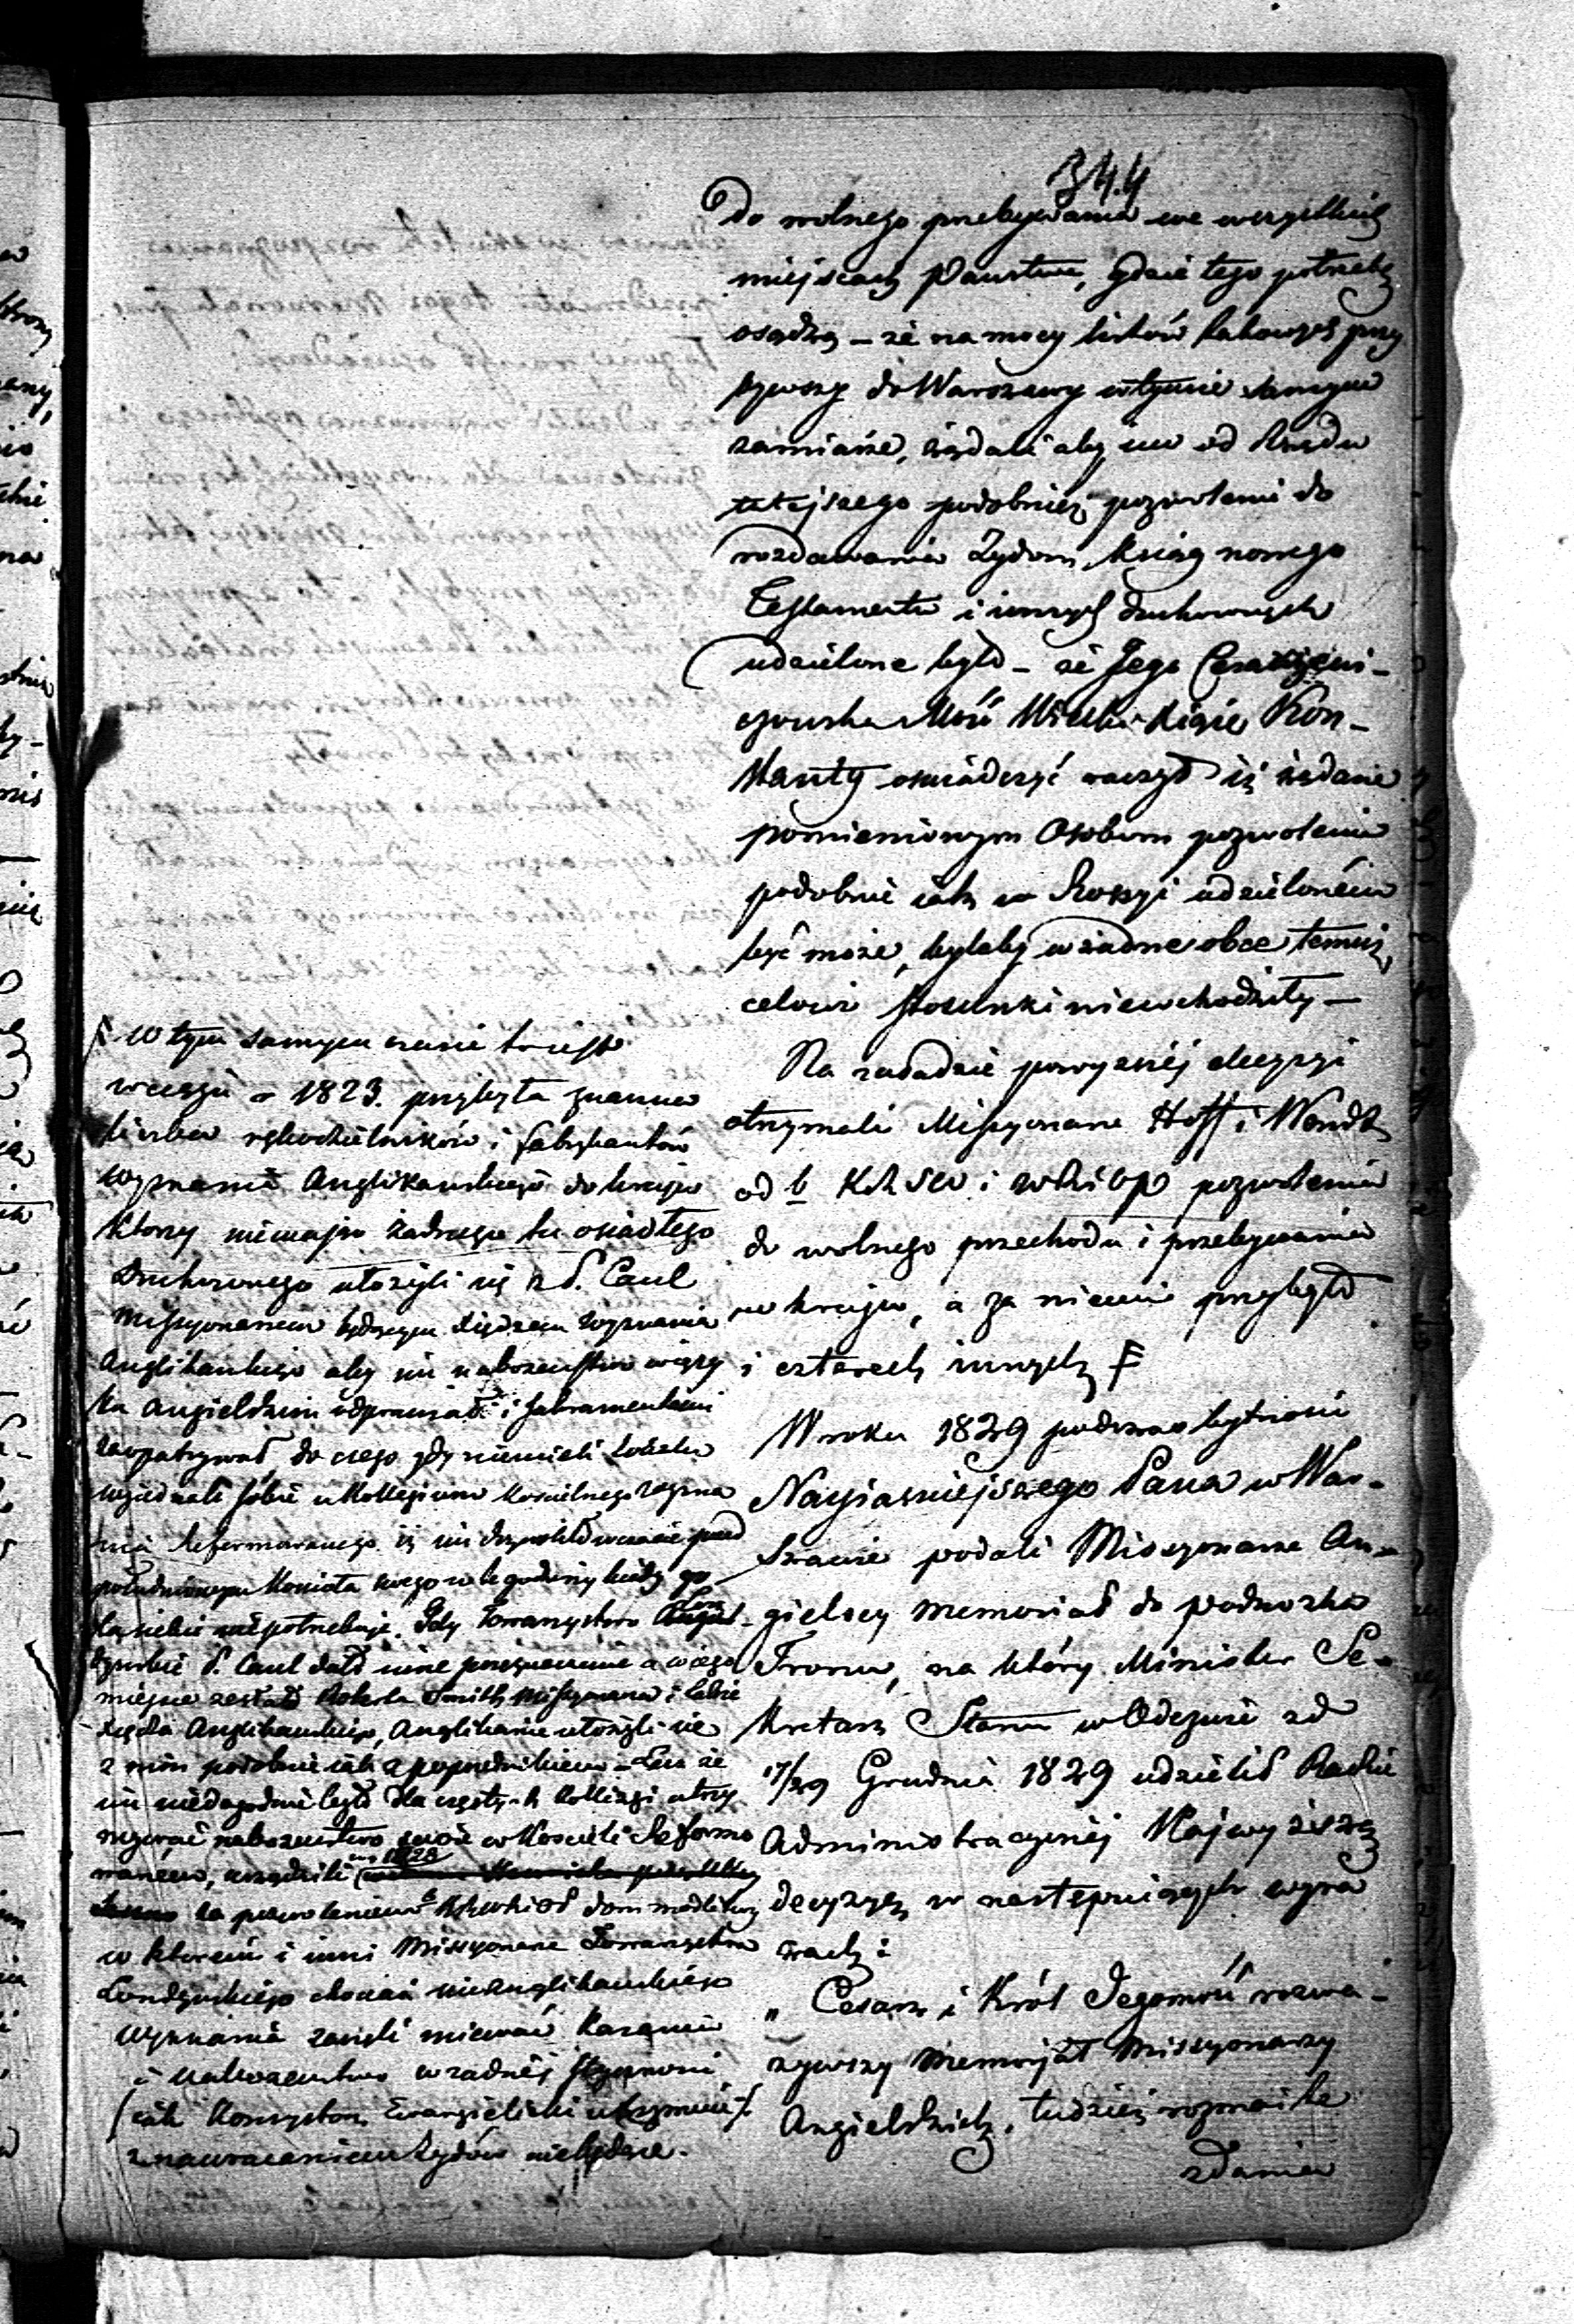 344
do wolnego przebywania we wszystkich
miejscach Państwa, gdzie tego potrzebę
osądzą – że na mocy listów takowych przy
bywszy do Warszawy w tymże samym
zamiarze, żądali aby im od Rządu
tutejszego podobnież pozwolenie do
rozdawania Żydom Ksiąg nowego
Testamentu i innych duchownych
udzielone było – że Jego Cesarzewi-
czowska Mość Wielki Xiąże Kon-
stanty oświadczyć raczył iż żądane
pomienionym Osobom pozwolenie
podobnie iak w Rossyi udzieloném
być może, byleby w żadne obce temuż
celowi stosunki niewchodziły –
Na zasadzie powyższéj decyzyi
otrzymali Missyonarze Hoff i Wendt
od b. K R S W i pozwolenie
do wolnego przechodu i przebywania
w kraju, a za niemi przybyło
i czterech innych F
W roku 1829 podczas bytności
Nayiaśniejszego Pana w War-
szawie podali Missyonarze An-
gielscy memoriał do podnóżka
Tronu, na który Minister Se-
kretarz Stanu w Odezwie z d
17/29 Grudnia 1829 udzielił Radzie
Administracyjnéj Najwyższą
decyzyę w następuiących wyra
zach:
„Cesarz i Król Jegomość rozwa-
żywszy Memoryał Missyonarzy
Angielskich, tudzież rozmaite
zdania
F W tym samym czasie to iest
wcześniej w 1823. przybyła znaczna
liczba rękodzielników i fabrykantów
Wyznania Anglikańskiego do kraju
którzy niemając żadnego tu osiadłego
Duchownego ułożyli się z P. Caul
Missyonarzem będącym Xiędzem Wyznania
Anglikańskiego aby im nabożeństwo w języ
ku angielskim odprawiał i Sakramentami
zaopatrywał, do czego gdy niemieli lokalu
wyiednali sobie u Kollegium Kościelnego Wyzna
nia Reformowanego iż im dozwoliło w czasie przed
południowym Kościoła swego w te godziny kiedy go
dla siebie niepotrzebuje. Gdy Towarzystwo Lon
dyńskie P. Caul dało inne przeznaczenie a w iego
miejsce zesłało Roberta Smith Missyonarza i także
Xiędza Anglikańskiego, Anglikanie ułożyli się
z nim podobnie iak z poprzednikiem – Lecz że
im niedogodnie było dla częstych kollizyi utrzy
mywać nabożeństwo swoie w Kościele Reformo
wanym, urządzili w 1828
za pozwoleniem dom modlitwy
w którém i inni Missyonarze Towarzystwa
Londyńskiego chociaż nieanglikańskiego
Wyznania zaczęli miewać Kazania
i nabożeństwo w żadnéj styczności
(iak Konsystorz Ewangielicki utrzymuie)
z nawracaniem Żydów niebędące.